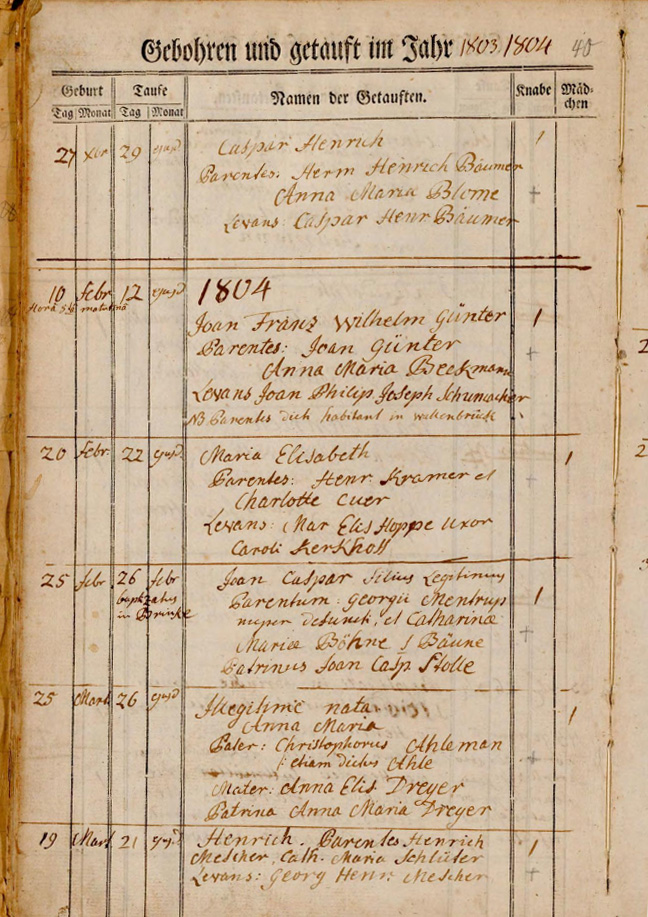 Gebohren und getauft im Jahr 1803 1804 40
Geburt Taufe Namen der Getauften. Knabe Mäd-
chen
Tag Monat Tag Monat
27 xbr 29 ejusd Caspar Henrich 1
Parentes: Herm Henrich Bäumer
Anna Maria Blome +
Levans: Caspar Henr Bäumer
10 febr 12 ejusd 1804
Hora matutina
Joan Franz Wilhelm Günter 1
Parentes: Joan Günter +
Anna Maria Beckmann
Levans Joan Philip Joseph Schumacher
NB Parentes habitant in
20 febr. 22 ejusd. Maria Elisabeth 1
Parentes: Henr. Kramer et +
Charlotte Cuer
Levans: Mar Elis Hoppe uxor
Caroli Kerkhoff
25 febr 26 febr Joan Caspar filius Legitimus
baptizatus Parentum: Georgii Mentrup 1
in Brinke nuper defunct, et Catharinæ
Mariæ Böhne / Bäune +
Patrinus Joan Casp Stolle
25 Mart 26 ejusd Illegitime nata 1
Anna Maria
Pater: Christophorus Ahleman
etiam dictus Ahle +
Mater: Anna Elis Dreyer
Patrina Anna Maria Dreyer
19 Mart 21 ejusd Henrich. Parentes Henrich 1
Mescher, Cath. Maria Schlüter
Levans: Georg Henr. Mescher +